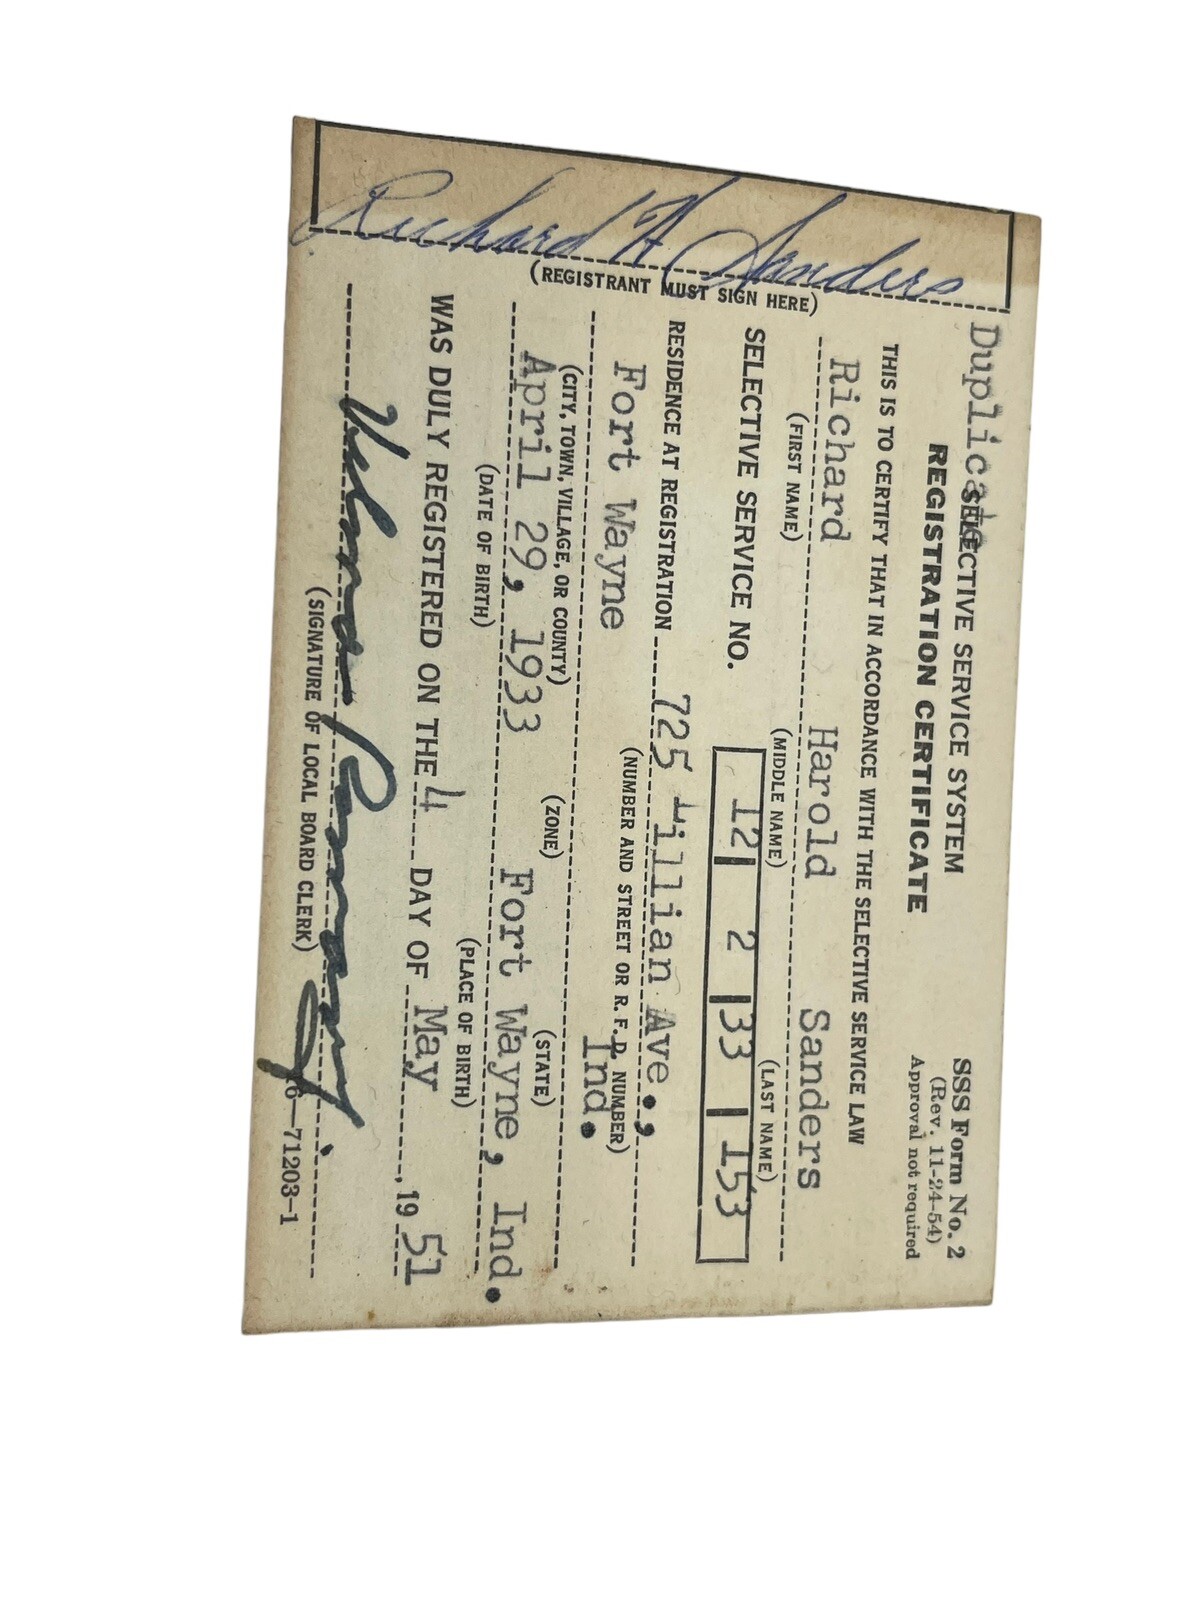 Duplicate
SELECTIVE SERVICE SYSTEM
REGISTRATION CERTIFICATE
SSS Form No. 2
(Rev. 11-24-54)
Approval not required
THIS IS TO CERTIFY THAT IN ACCORDANCE WITH THE SELECTIVE SERVICE LAW
Richard Harold Sanders
(FIRST NAME) (MIDDLE NAME) (LAST NAME)
SELECTIVE SERVICE NO. 12 2 33 153
RESIDENCE AT REGISTRATION 725 Lillian Ave.,
(NUMBER AND STREET OR R. F. D. NUMBER)
Fort Wayne Ind.
(CITY, TOWN, VILLAGE, OR COUNTY) (ZONE) (STATE)
April 29, 1933 Fort Wayne, Ind.
(DATE OF BIRTH) (PLACE OF BIRTH)
WAS DULY REGISTERED ON THE 4 DAY OF May, 19 51
(SIGNATURE OF LOCAL BOARD CLERK) 16—71203-1
Richard H Sanders
(REGISTRANT MUST SIGN HERE)